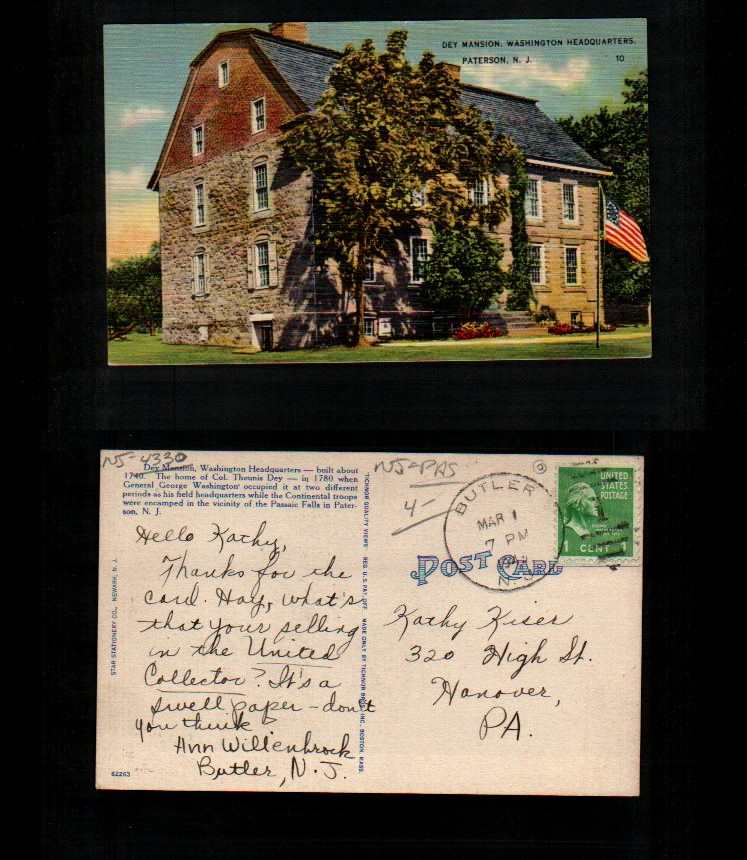 DEY MANSION, WASHINGTON HEADQUARTERS,
PATERSON, N. J.
10
NJ-4330
Dey Mansion, Washington Headquarters — built about
1740. The home of Col. Theunis Dey — in 1780 when
General George Washington occupied it at two different
periods as his field headquarters while the Continental troops
were encamped in the vicinity of the Passaic Falls in Pater-
son, N. J.
Hello Kathy,
Thanks for the
card. Hay, what's
that your selling
in the United
Collector? It's a
swell paper - don't
you think
Ann Willenbrock
Butler, N.J.
62263
STAR STATIONERY CO., NEWARK, N. J.
TICHNOR QUALITY VIEWS REG. U.S. PAT. OFF. MADE ONLY BY TICHNOR BROS., INC., BOSTON, MASS.
NJ-PAS
4-
BUTLER
MAR 1
7 PM
N.J.
UNITED
STATES
POSTAGE
1 CENT 1
POST CARD
Kathy Kiser
320 High St.
Hanover,
PA.